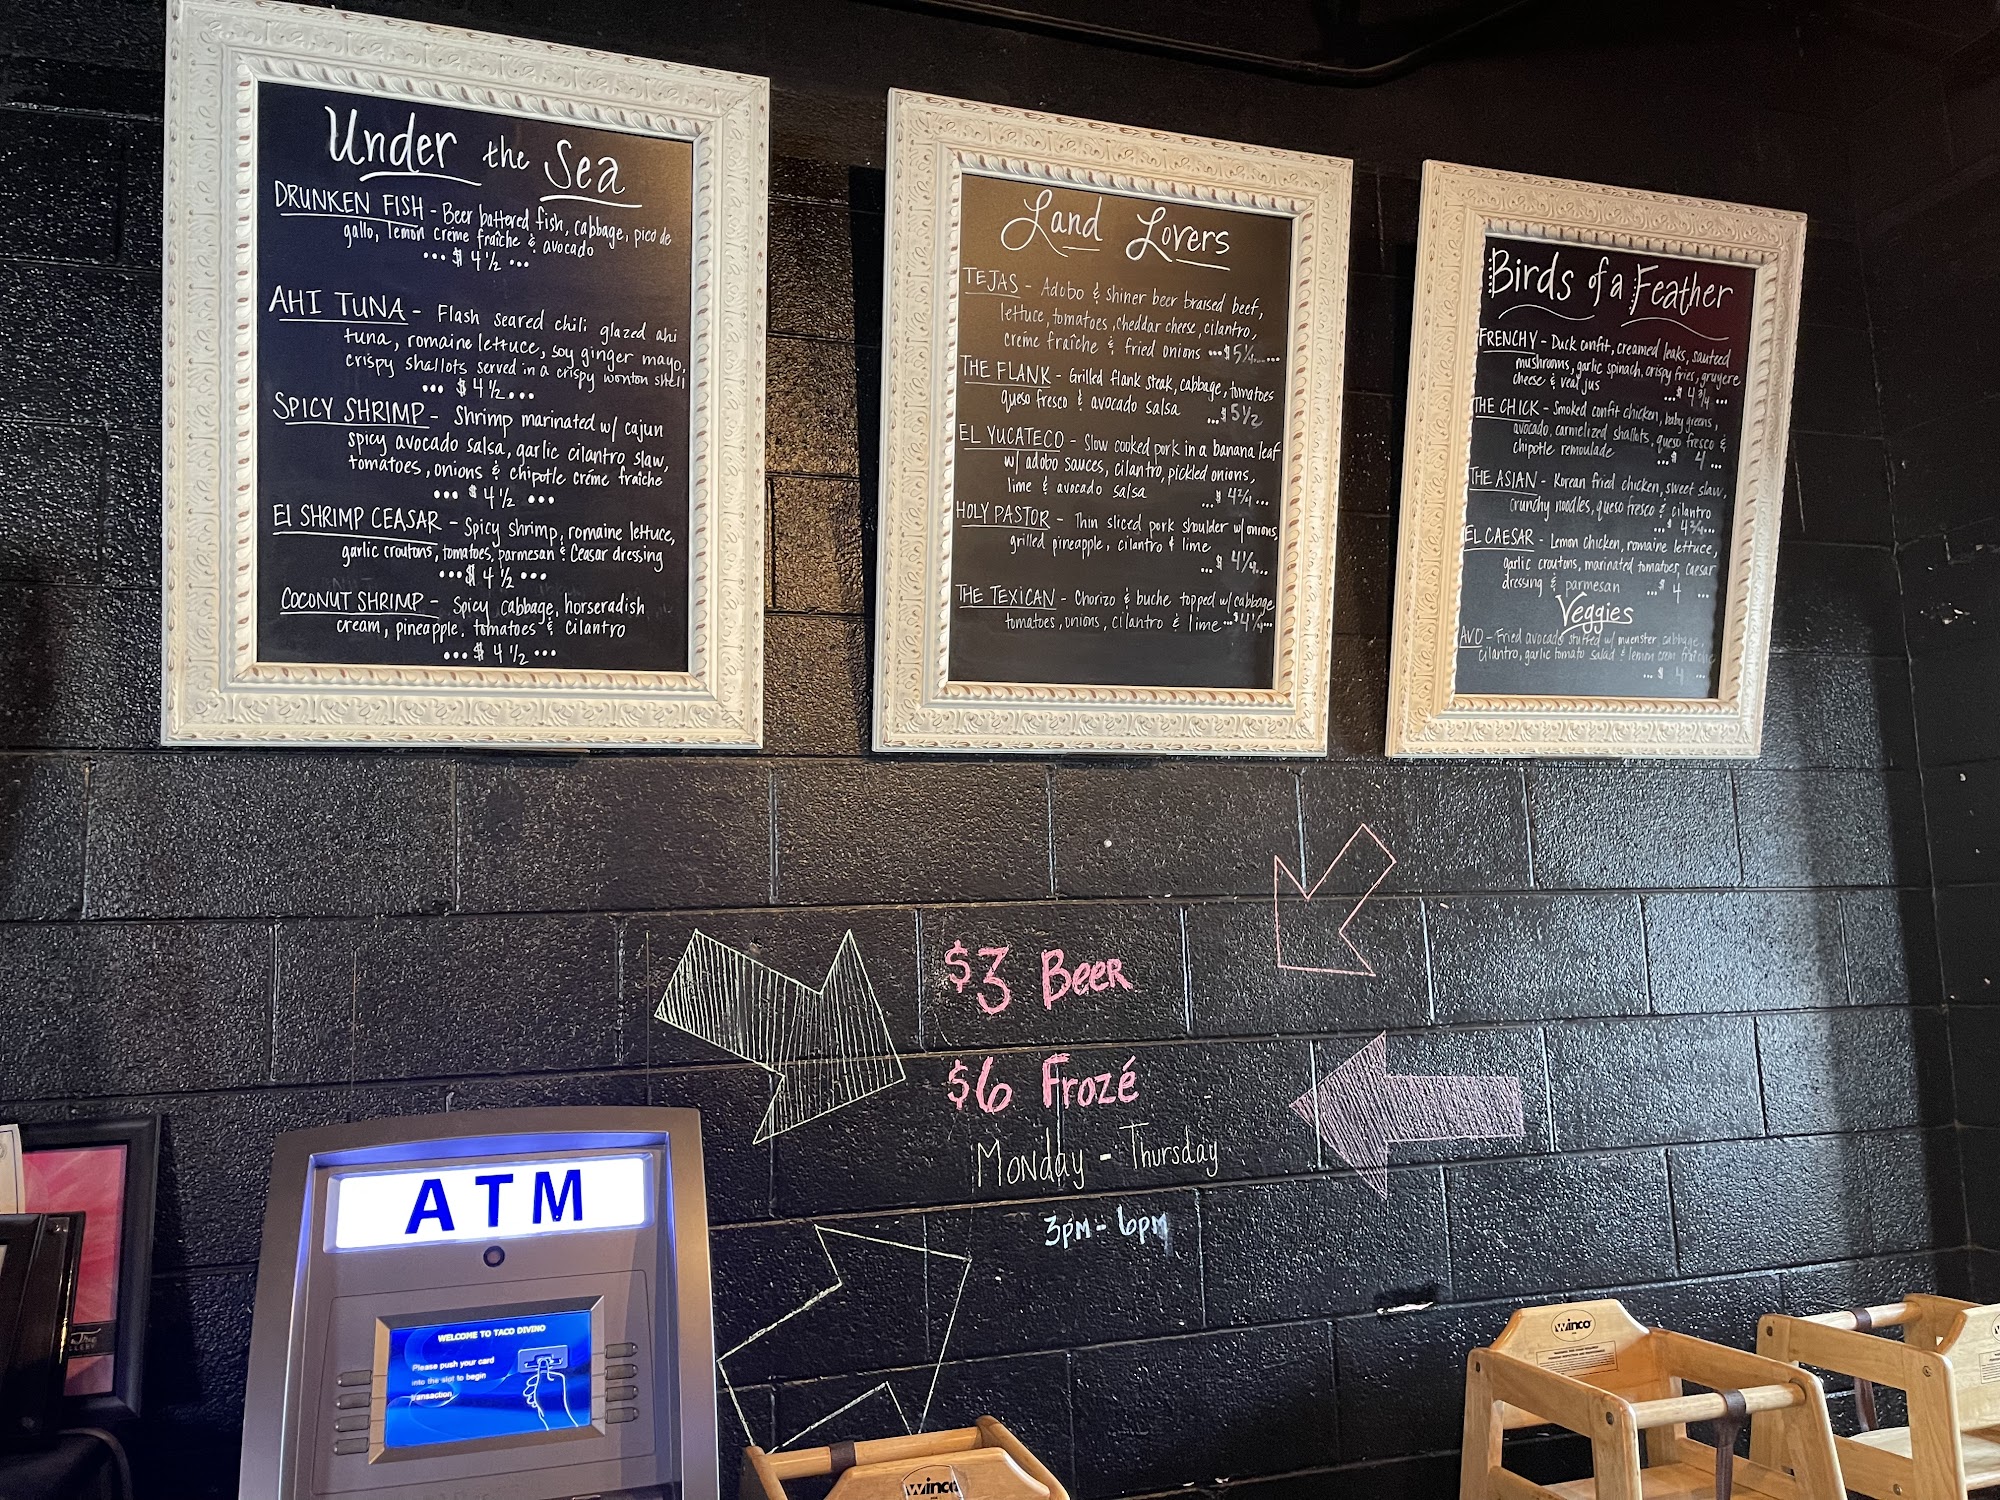 Under the Sea
DRUNKEN FISH - Beer battered fish, cabbage, pico de
gallo, lemon crème fraîche & avocado
... $ 4 1/2 ...
AHI TUNA - Flash seared chili glazed ahi
tuna, romaine lettuce, soy ginger mayo,
crispy shallots served in a crispy wonton shell
... $ 4 1/2 ...
SPICY SHRIMP - Shrimp marinated w/ cajun
spicy avocado salsa, garlic cilantro slaw,
tomatoes, onions & chipotle créme fraiche
... $ 4 1/2 ...
El SHRIMP CEASAR - Spicy shrimp, romaine lettuce,
garlic croutons, tomatoes, parmesan & Ceasar dressing
... $ 4 1/2 ...
COCONUT SHRIMP - Spicy cabbage, horseradish
cream, pineapple, tomatoes & cilantro
... $ 4 1/2 ...
Land Lovers
TEJAS - Adobo & shiner beer braised beef,
lettuce, tomatoes, cheddar cheese, cilantro,
créme fraîche & fried onions ... $ 5 1/4 ...
THE FLANK - Grilled flank steak, cabbage, tomatoes
queso fresco & avocado salsa ... $ 5 1/2
EL YUCATECO - Slow cooked pork in a banana leaf
w/ adobo sauces, cilantro, pickled onions,
lime & avocado salsa ... $ 4 2/4 ...
HOLY PASTOR - Thin sliced pork shoulder w/ onions,
grilled pineapple, cilantro & lime
... $ 4 1/4 ...
THE TEXICAN - Chorizo & buche topped w/ cabbage
tomatoes, onions, cilantro & lime ... $ 4 1/4 ...
Birds of a Feather
FRENCHY - Duck confit, creamed leaks, sauteed
mushrooms, garlic spinach, crispy fries, gruyere
cheese & veal jus ... $ 4 3/4 ...
THE CHICK - Smoked confit chicken, baby greens,
avocado, carmelized shallots, queso fresco &
chipotle remoulade ... $ 4 ...
THE ASIAN - Korean fried chicken, sweet slaw,
crunchy noodles, queso fresco & cilantro
... $ 4 2/4 ...
EL CAESAR - Lemon chicken, romaine lettuce,
garlic croutons, marinated tomatoes, caesar
dressing & parmesan ... $ 4 ...
Veggies
AVO - Fried avocado stuffed w/ muenster cabbage,
cilantro, garlic tomato salad & lemon crem fraîche
... $ 4 ...
$3 Beer
$6 Frozé
Monday - Thursday
3PM - 6PM
ATM
WELCOME TO TACO DIVINO
Please push your card
into the slot to begin
transaction
winco
winco